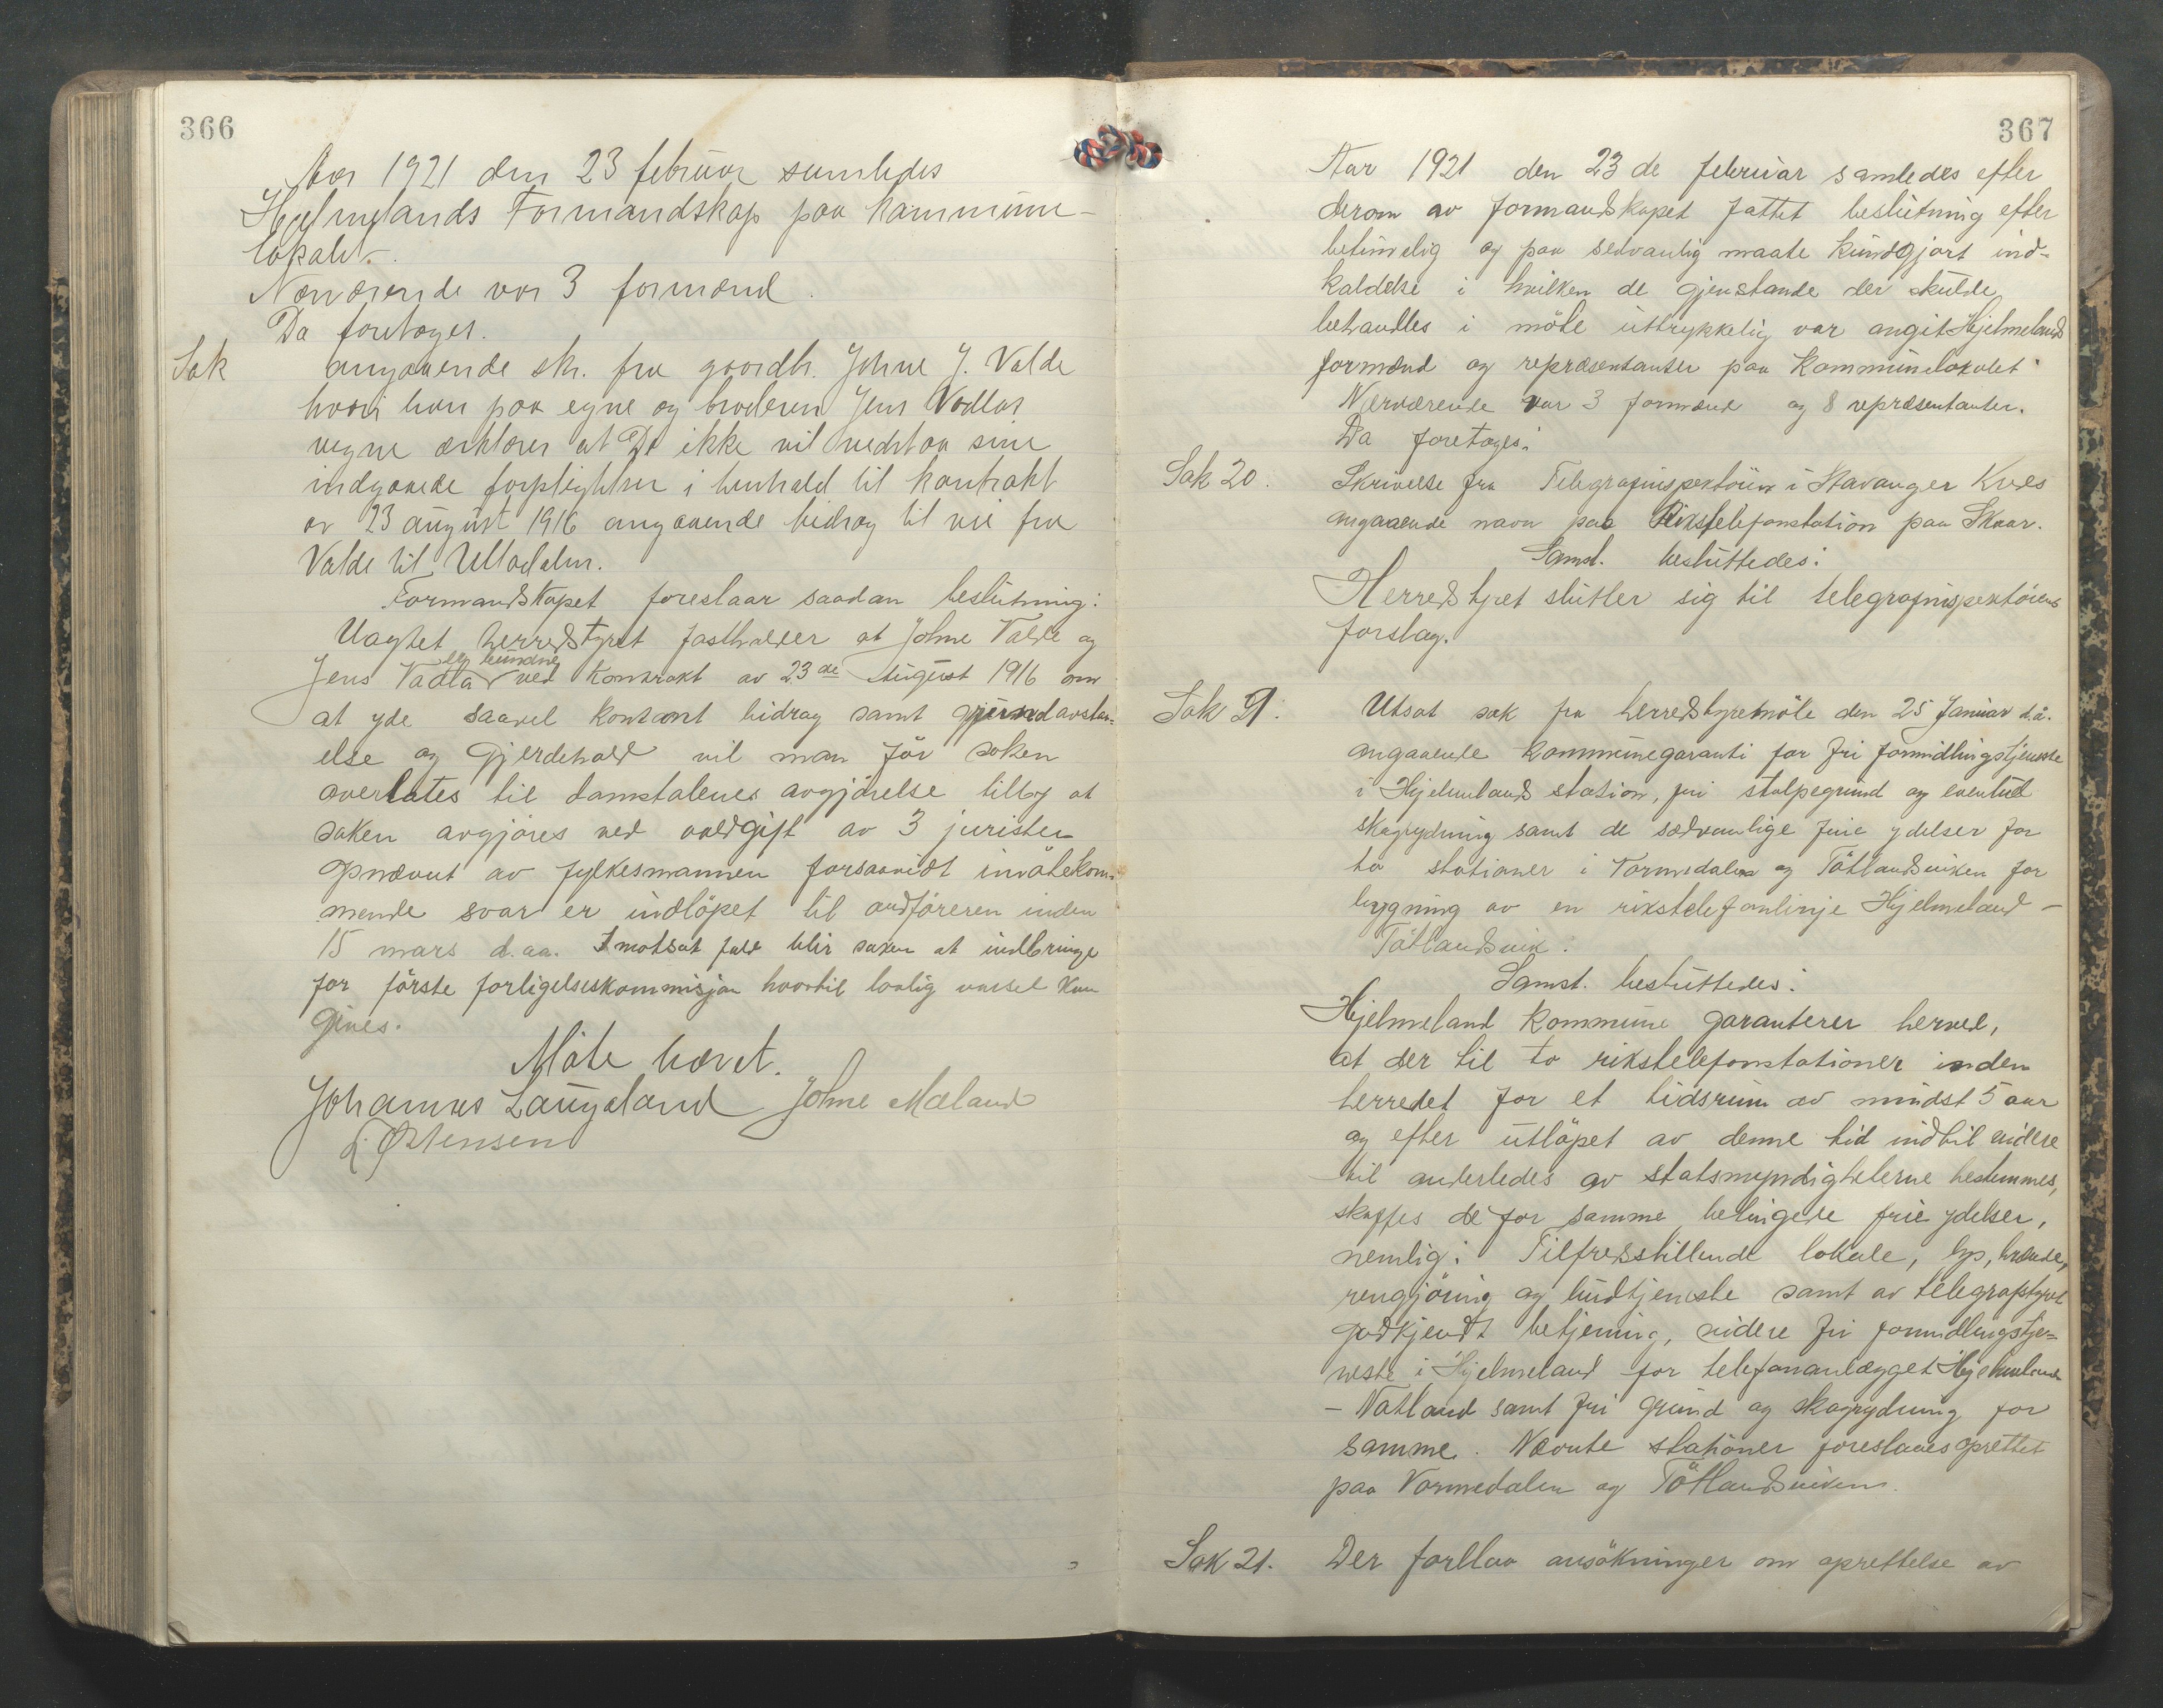 366
Aar 1921 den 23 februar samledes
Hjelmelands Formandskap paa kommune-
lokalet.
Nærværende var 3 formænd.
Da foretoges.
Sak angaaende skr. fra gaardbr. Johne J. Valde
hvori han paa egne og broderen Jens Vadlas
vegne erklærer at De ikke vil vedstaa sine
indgaaede forpligtelser i henhold til kontrakt
av 23 august 1916 angaaende bidrag til vei fra
Valde til Ulladalen.
Formandskapet foreslaar saadan beslutning:
Uagtet herredstyret fastholder at Johne Valde og
er bundne
Jens Vadla ved Kontrakt av 23de August 1916 om
at yde saavel kontant bidrag samt grundavstaa-
else og gjerdehold vil man før saken
overlates til domstolenes avgjørelse tilby at
saken avgjøres ved voldgift av 3 jurister
opnævnt av fylkesmannen forsaavidt imøtekom-
mende svar er indløpet til ordføreren inden
15 mars d.aa. I motsat fald blir saken at indbringe
for første forligelseskommisjon hvortil lovlig varsel kan
gives.
Møte hævet.
Johannes Laugaland Johne Mæland
L. Østensen
367
Aar 1921 den 23 de februar samledes efter
derom av formandskapet fattet beslutning efter
betimelig og paa sedvanlig maate kundgjort ind-
kaldelse i hvilken de gjenstande der skulde
behandles i møte uttrykkelig var angit Hjelmelands
formænd og repræsentanter paa Kommunelokalet.
Nærværende var 3 formænd og 8 repræsentanter.
Da foretoges:
Sak 20. Skrivelse fra Telegrafinspektøren i Stavanger Kreds
angaaende navn paa Rikstelefonstation paa Skaar.
Samst. besluttedes:
Herredstyret slutter sig til telegrafinspektørens
forslag.
Sak 9. Utsat sak fra herredstyremøte den 25 Januar d.å.
angaaende kommunegaranti for fri formidlingstjeneste
i Hjelmeland station, fri stolpegrund og eventuel
skogrydning samt de sædvanlige frie ydelser for
to stationer i Vormedalen og Tøtlandsviken for
bygning av en rikstelefonlinje Hjelmeland -
Tøtlandsvik.
Samst. besluttedes:
Hjelmeland Kommune garanterer herved,
at der til to rikstelefonstationer inden
herredet for et tidsrum av mindst 5 aar
og efter utløpet av denne tid indtil videre
til anderledes av statsmyndigheterne bestemmes,
skaffes de for samme betingede frie ydelser,
nemlig: Tilfredsstillende lokale, lys, brænde,
rengjøring og budtjeneste samt av telegrafstyret
godkjendt betjening, videre fri formidlingstje-
neste i Hjelmeland for telefonanlægget Hjelmeland
- Tøtland samt fri grund og skogrydning for
samme. Nævnte stationer foreslaaes oprettet
paa Vormedalen og Tøtlandsviken.
Sak 21. Der forelaa ansøkninger om oprettelse av